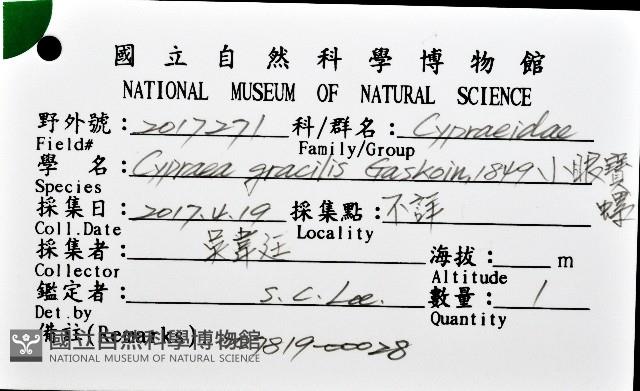 國立自然科學博物館
NATIONAL MUSEUM OF NATURAL SCIENCE
野外號：2017271 科/群名：Cypraeidae
Field# Family/Group
學 名：Cypraea gracilis Gaskoin, 1849 小眼寶螺
Species
採集日：2017.4.19 採集點：不詳
Coll.Date Locality
採集者：吳韋廷 海拔：m
Collector Altitude
鑑定者：S.C.Lee. 數量：1
Det.by Quantity
備註(Remarks) 7819-00028
國立自然科學博物館
NATIONAL MUSEUM OF NATURAL SCIENCE